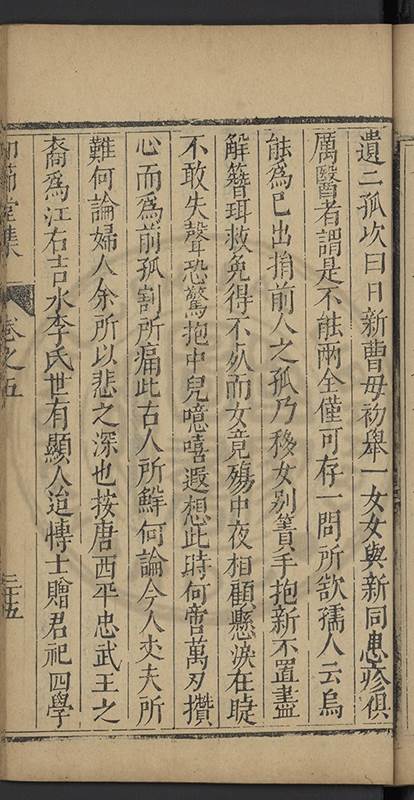 遺二孤次曰日新曹母初舉一女女與新同患疹俱
厲醫者謂是不能兩全僅可存一問所欲孺人云烏
能爲已出捐前人之孤乃移女別簀手抱新不置盡
解簪珥救免得不死而女竟殤中夜相顧懸淚在睫
不敢失聲恐驚抱中兒噫嘻遐想此時何啻萬刃攢
心而爲前孤割所痛此古人所鮮何論今人丈夫所
難何論婦人余所以悲之深也按唐西平忠武王之
裔爲江右吉水李氏世有顯人迨博士贈君祀四學
節堂集
卷之五
三十五